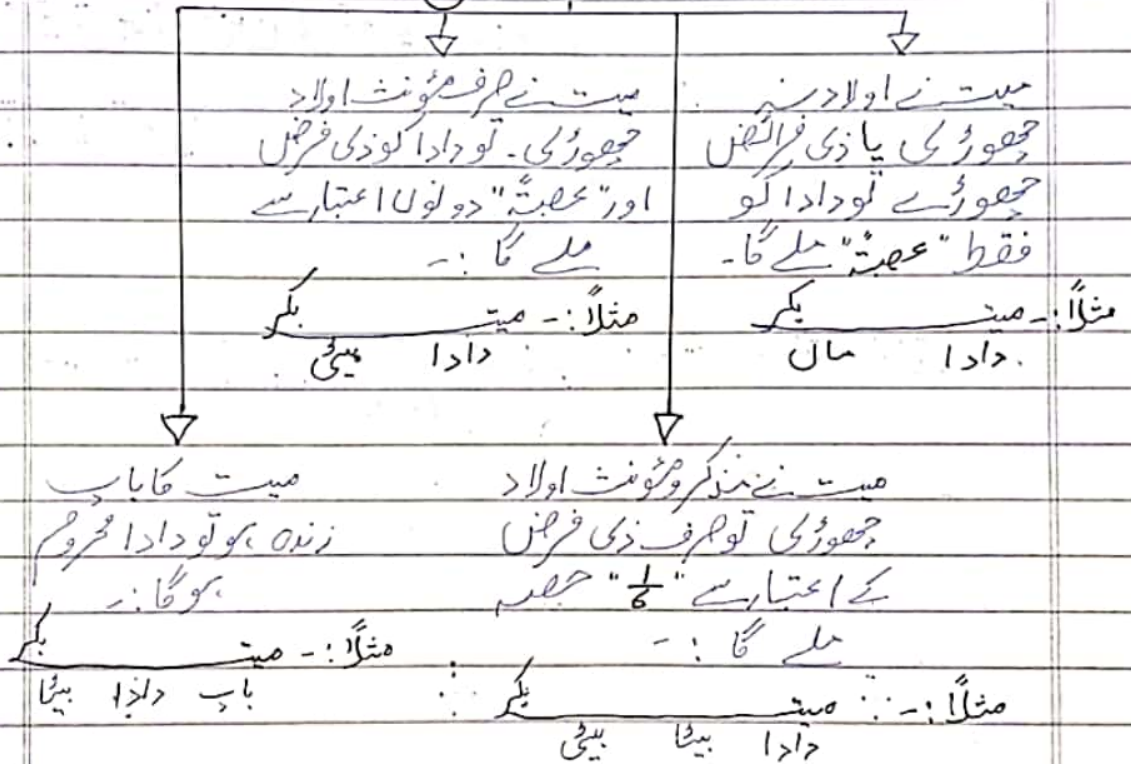 میت نے اولاد نہ
چھوڑی یا ذی فرائض
چھوڑے تو دادا کو
فقط "عصبۃً" ملے گا۔
مثلاً:- میت بکر
دادا ماں
میت نے صرف مؤنث اولاد
چھوڑی۔ تو دادا کو ذی فرض
اور "عصبۃً" دونوں اعتبار سے
ملے گا :-
مثلاً:- میت بکر
دادا بیٹی
میت نے مذکر و مؤنث اولاد
چھوڑی تو صرف ذی فرض
کے اعتبار سے "1/6" حصہ
ملے گا :-
مثلاً:- میت بکر
دادا بیٹا بیٹی
میت کا باپ
زندہ ہو تو دادا محروم
ہوگا:-
مثلاً:- میت بکر
باپ دادا بیٹا